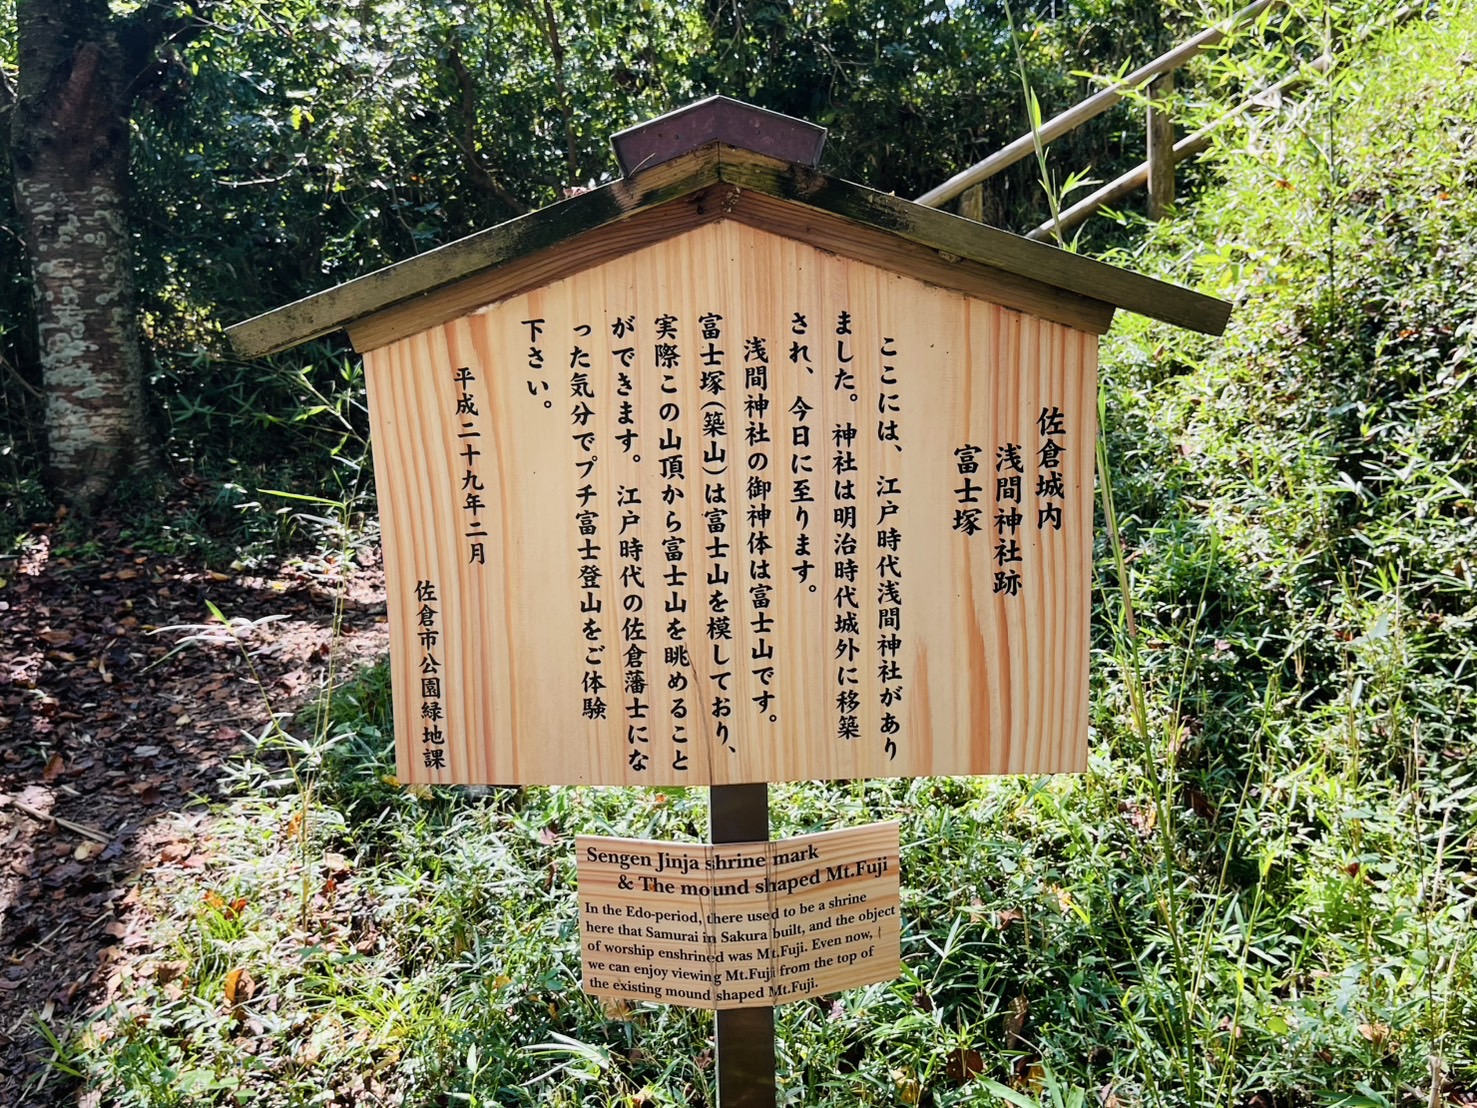 佐倉城内
浅間神社跡
富士塚
ここには、江戸時代浅間神社があり
ました。神社は明治時代城外に移築
され、今日に至ります。
浅間神社の御神体は富士山です。
富士塚(築山)は富士山を模しており、
実際この山頂から富士山を眺めること
ができます。江戸時代の佐倉藩士にな
った気分でプチ富士登山をご体験
下さい。
平成二十九年二月
佐倉市公園緑地課
Sengen Jinja shrine mark
& The mound shaped Mt.Fuji
In the Edo-period, there used to be a shrine
here that Samurai in Sakura built, and the object
of worship enshrined was Mt.Fuji. Even now,
we can enjoy viewing Mt.Fuji from the top of
the existing mound shaped Mt.Fuji.